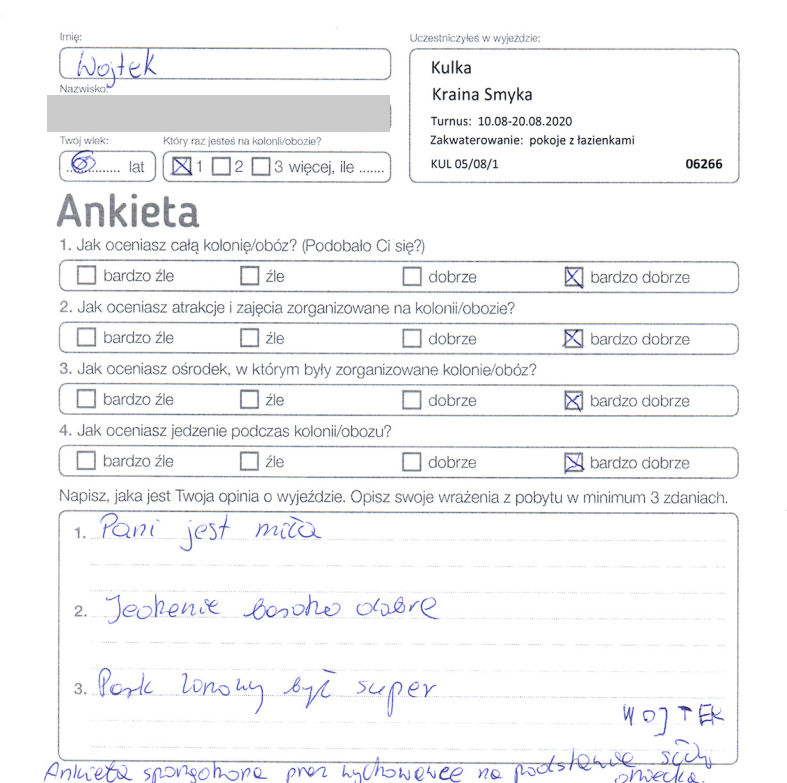 Imię:
Wojtek
Uczestniczyłeś w wyjeździe:
Kulka
Kraina Smyka
Turnus: 10.08-20.08.2020
Zakwaterowanie: pokoje z łazienkami
KUL 05/08/1 06266
Nazwisko:
Twój wiek: Który raz jesteś na kolonii/obozie?
6 lat 1 2 3 więcej, ile .......
Ankieta
1. Jak oceniasz całą kolonię/obóz? (Podobało Ci się?)
bardzo źle źle dobrze bardzo dobrze
2. Jak oceniasz atrakcje i zajęcia zorganizowane na kolonii/obozie?
bardzo źle źle dobrze bardzo dobrze
3. Jak oceniasz ośrodek, w którym były zorganizowane kolonie/obóz?
bardzo źle źle dobrze bardzo dobrze
4. Jak oceniasz jedzenie podczas kolonii/obozu?
bardzo źle źle dobrze bardzo dobrze
Napisz, jaka jest Twoja opinia o wyjeździe. Opisz swoje wrażenia z pobytu w minimum 3 zdaniach.
1. Pani jest miła
2. Jedzenie bardzo dobre
3. Park linowy był super
WOJTEK
Ankieta sporządzona przez wychowawcę na podstawie słów
dziecka.